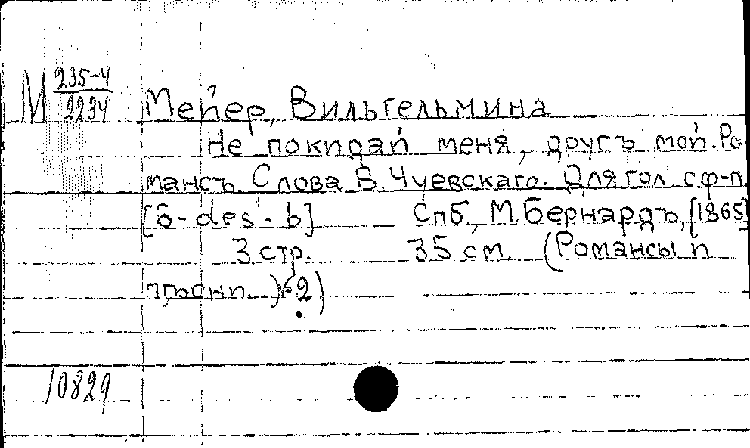 М 235-4
2234
Мейер, Вильгельмина
Не покидай меня, другъ мой. Ро-
мансъ Слова В. Чуевскаго. Для гол с ф-п
[б-des-b] Спб, М. Бернардъ, [1865]
3 стр. 35 см (Романсы и
пѣсни. № 2)
10829